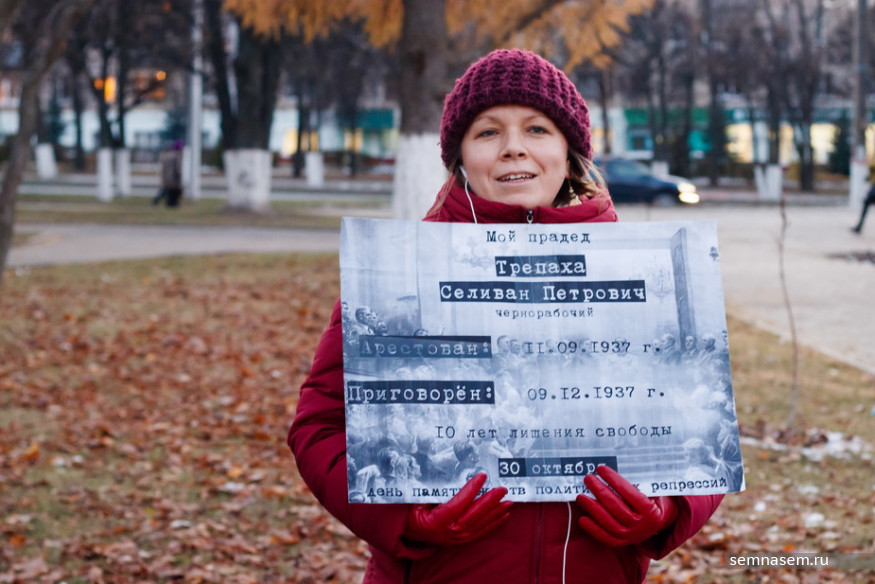 Мой прадед
Трепаха
Селиван Петрович
чернорабочий
Арестован: 11.09.1937 г.
Приговорён: 09.12.1937 г.
10 лет лишения свободы
30 октября
день политич репрессий
semnasem.ru